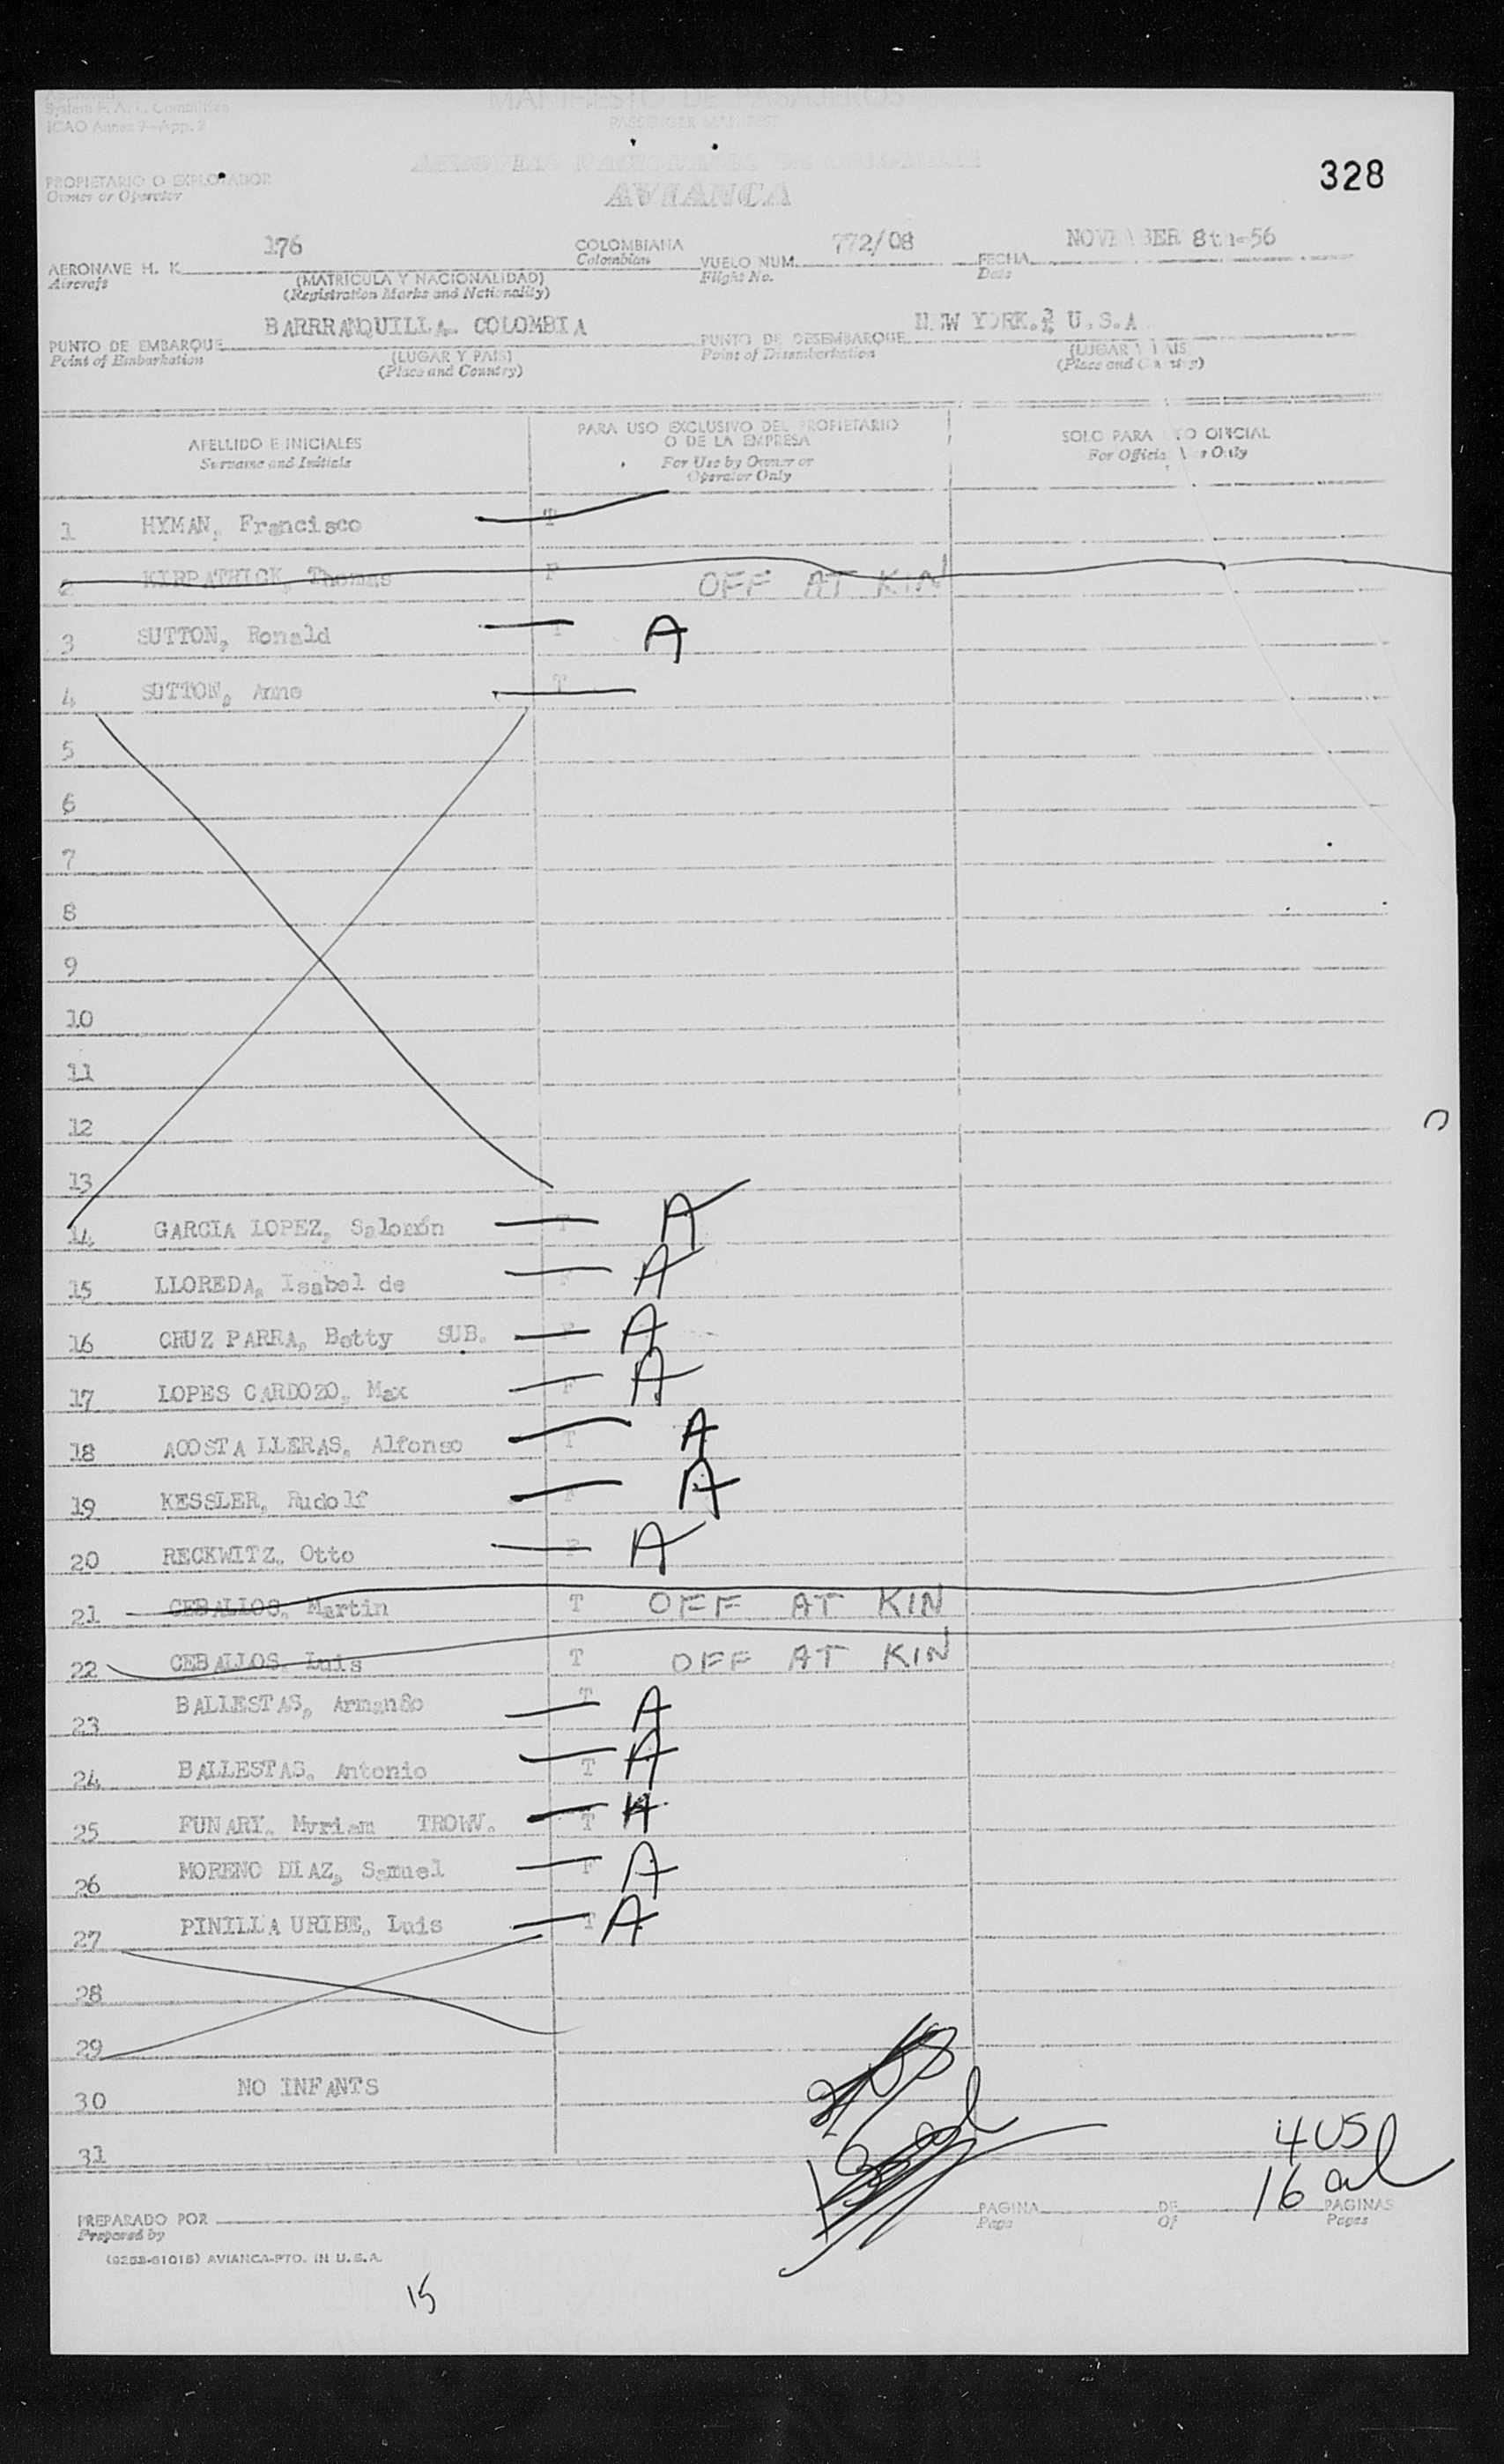 System F. A. L. Committee
ICAO Annex 9-App. 2
MANIFIESTO DE PASAJEROS
PASSENGER MANIFEST
328
PROPIETARIO O EXPLOTADOR
Owner or Operator
AVIANCA
AERONAVE H. K. 176 COLOMBIANA VUELO NUM. 772/08 FECHA NOVEMBER 8th-56
Aircraft (MATRICULA Y NACIONALIDAD) Colombian Flight No. Date
(Registration Marks and Nationality)
PUNTO DE EMBARQUE BARRRANQUILLA. COLOMBIA PUNTO DE DESEMBARQUE NEW YORK. U.S.A.
Point of Embarkation (LUGAR Y PAIS) Point of Disembarkation (LUGAR Y PAIS)
(Place and Country) (Place and Country)
APELLIDO E INICIALES PARA USO EXCLUSIVO DEL PROPIETARIO O DE LA EMPRESA SOLO PARA USO OFICIAL
Surname and Initials For Use by Owner or Operator Only For Official Use Only
1 HYMAN, Francisco T
2 KIRPATRICK, Thomas F OFF AT KIN
3 SUTTON, Ronald T A
4 SUTTON, Anne T
5
6
7
8
9
10
11
12
13
14 GARCIA LOPEZ, Salomón T A
15 LLOREDA, Isabel de F A
16 CRUZ PARRA, Betty SUB. F A
17 LOPES CARDOZO, Max F A
18 ACOSTA LLERAS, Alfonso T A
19 KESSLER, Rudolf F A
20 RECKWITZ, Otto F A
21 CEBALLOS, Martin T OFF AT KIN
22 CEBALLOS, Luis T OFF AT KIN
23 BALLESTAS, Armando T A
24 BALLESTAS, Antonio T A
25 FUNARY, Myriam TROWV. T A
26 MORENO DIAZ, Samuel F A
27 PINILLA URIBE, Luis T A
28
29
30 NO INFANTS
31
4 US
16 al
PREPARADO POR PAGINA DE PAGINAS
Prepared by Page Of Pages
(9253-61015) AVIANCA-PTO. IN U.S.A.
15